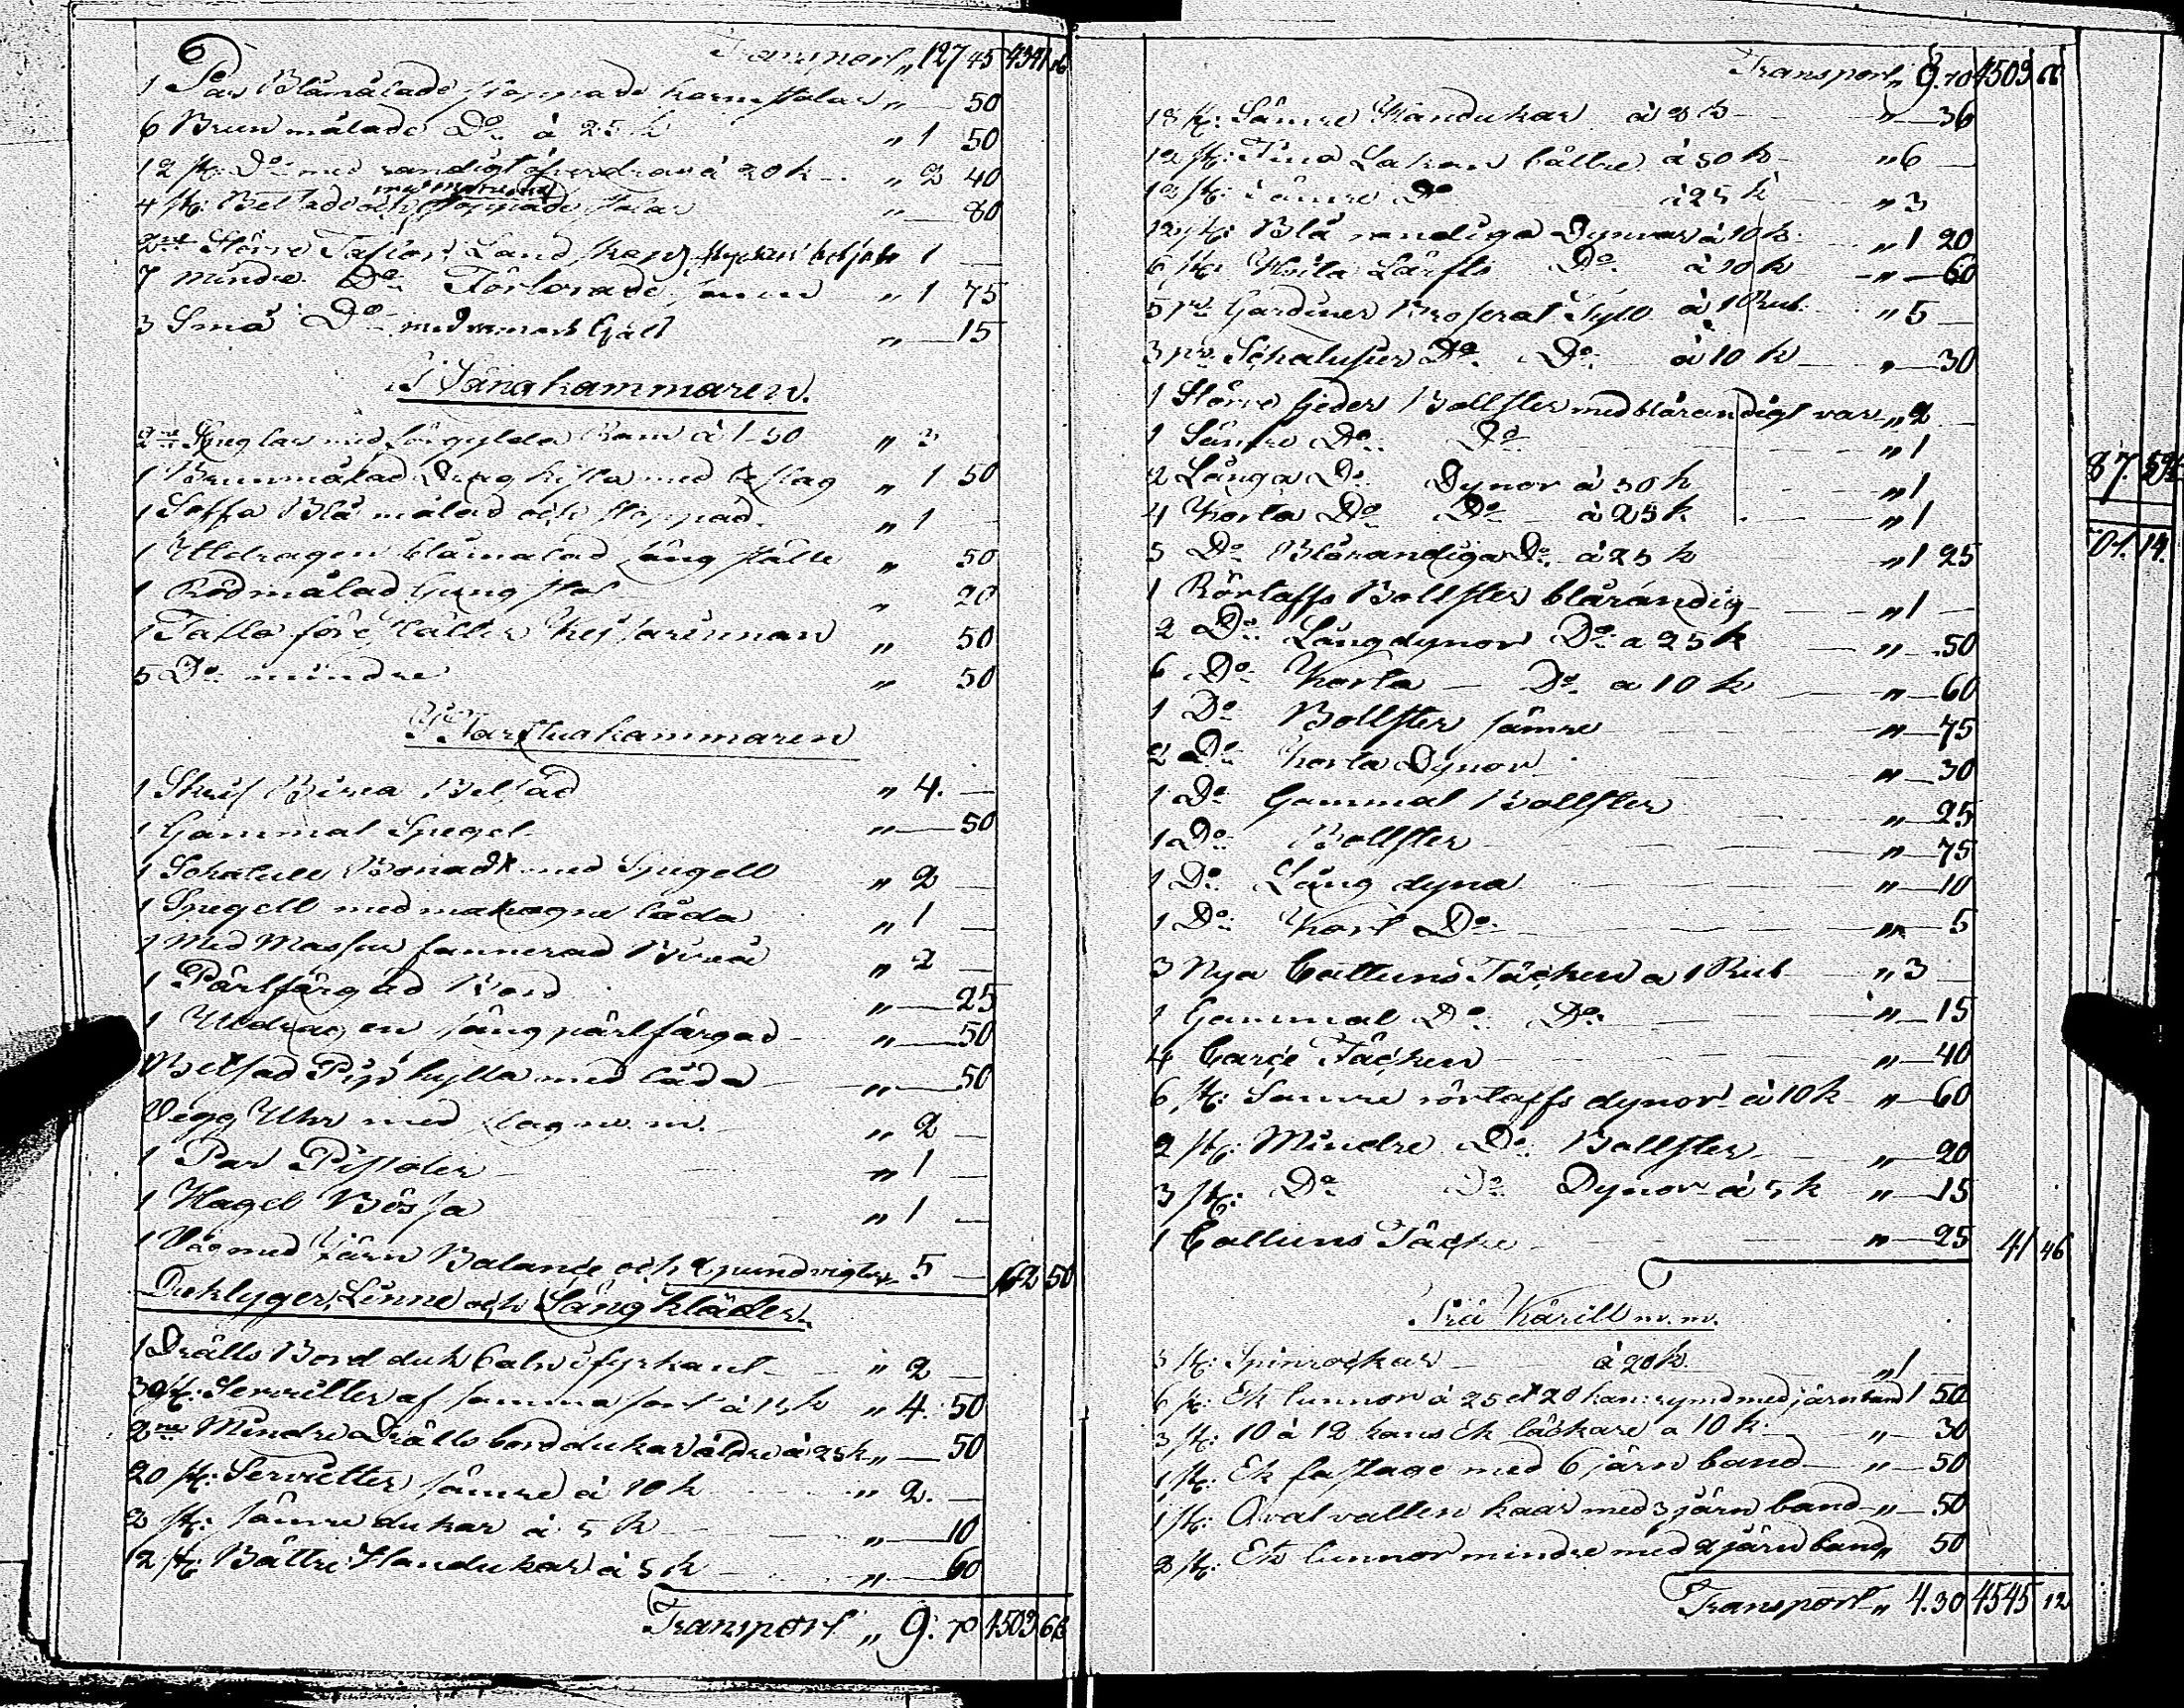 6
Transport „ 127 45 4341 16
1 Par Blåmålade stoppade karmstolar „ — 50
6 Brunmålade Do à 25 k „ 1 50
12 st: Do med randigt öfverdrag à 20 k „ 2 40
med
4 st: Betsade och stoppade stolar „ — 80
2ne Större Taflor, Landskap, 1 —
7 mindre Do Förlorade sonen „ 1 75
3 Små Do med „ — 15
I Sängkammaren.
2ne Speglar med förgyldta Ram à 1-50 „ 3
1 Brunmålad Dragkista med beslag „ 1 50
1 Soffa Blå målad och stoppad „ 1 —
1 Utdragen blåmålad sängställe „ 50
1 Rödmålad Gungstol „ 20
1 Tafla föreställer Kejsarinnan „ 50
5 Do mindre „ 50
I Farstuakammaren
1 Skrif Birca Betsad „ 4. —
1 Gammal Spegel „ — 50
1 Schatull Bonadt med Spegell „ 2 —
1 Spegell med mahogne låda „ 1 —
1 Med Massur fannerad Birå „ 2 —
1 Pärlfärgad Bord „ — 25
1 Utdragen säng pärlfärgad „ — 50
Betsad Piphylla med låda „ — 50
Vägg Uhr med slagv. m. „ 2 —
1 Par Pistoler „ 1 —
1 Hagel Bössa „ 1 —
1 Våg med Järn Balance och 2 pundvigter „ 5 — 162 50
Duktyger, Linne och Sängkläder.
1 Drälls Bord duk 6 aln i fyrkant „ 2 —
30 st: Servietter af samma sort à 15 k „ 4. 50
2ne Mindre Drälls borddukar äldre à 25 k „ — 50
20 st: Servietter sämre à 10 k „ 2. —
2 st: sämre dukar à 5 k „ — 10
12 st: Bättre Handukar à 5 k „ — 60
Transport „ 9. 70 4503 66
Transport „ 9. 70 4503 66
18 st: Sämre Handukar à 2 k „ — 36
12 st: Fina Lakan bättre à 50 k „ 6 —
12 st: Sämre Do à 25 k „ 3
12 st: Blå randiga Dynvar à 10 k „ 1 20
6 st: Hvita Lärfts Do à 10 k „ — 60
5 par Gardiner Broserat Tyll à 1 Rub. „ 5 —
3 par Schalusier Do Do à 10 k „ — 30
1 Större fjeder Bollster med blårandigt var „ 2 —
1 Sämre Do Do „ 1
2 Långa Do Dynor à 50 k „ 1
4 Korta Do Do à 25 k „ 1
5 Do Blårandiga Do à 25 k „ 1 25
1 Rörtaffs Bollster blårandig „ 1 —
2 Do Långdynor Do a 25 k „ — 50
6 Do Korta — Do a 10 k „ — 60
1 Do Bollster sämre „ — 75
2 Do Korta Dynor „ — 30
1 Do Gammal Bollster „ — 25
1 Do Bollster „ — 75
1 Do Lång dyna „ — 10
1 Do Kort Do „ — 5
3 Nya Cattuns Täcken a 1 Rub „ 3 —
1 Gammal Do Do „ — 15
4 Carse Täcken „ — 40
6 st: Samre rörtaffs dynor à 10 k „ — 60
2 st: Mindre Do Bollster „ — 20
3 st: Do Do Dynor à 5 k „ — 15
1 Cattuns Täcke „ — 25 41 46
Trä Kärill m. m.
5 st: Spinrockar à 20 k „ 1
6 st: Ek tunnor à 25 et 20 kan: rymd med järnband 1 50
3 st: 10 à 12 kans Ek läskare a 10 k „ — 30
1 st: Ek fastage med 6 järn band „ — 50
1 st: Oval vatten kaar med 3 järn band „ — 50
2 st: Ek tunnor mindre med 2 järn band „ 50
Transport „ 4. 30 4545 12
87. 52
501. 14.